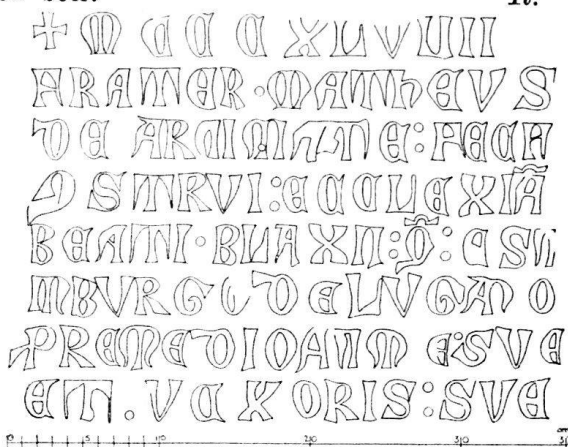 ✠ M C C C XLVUII
FRATER · MATHEVS
DE :
9 STRVI : ECCLEXIÃ
BEATI · BLAXII : Q̃ : EST
IMBVRGO DE LVGANO
PREMEDIO ANIM E : SVE
ET . VCXORIS : SVE
0 5 10 20 30